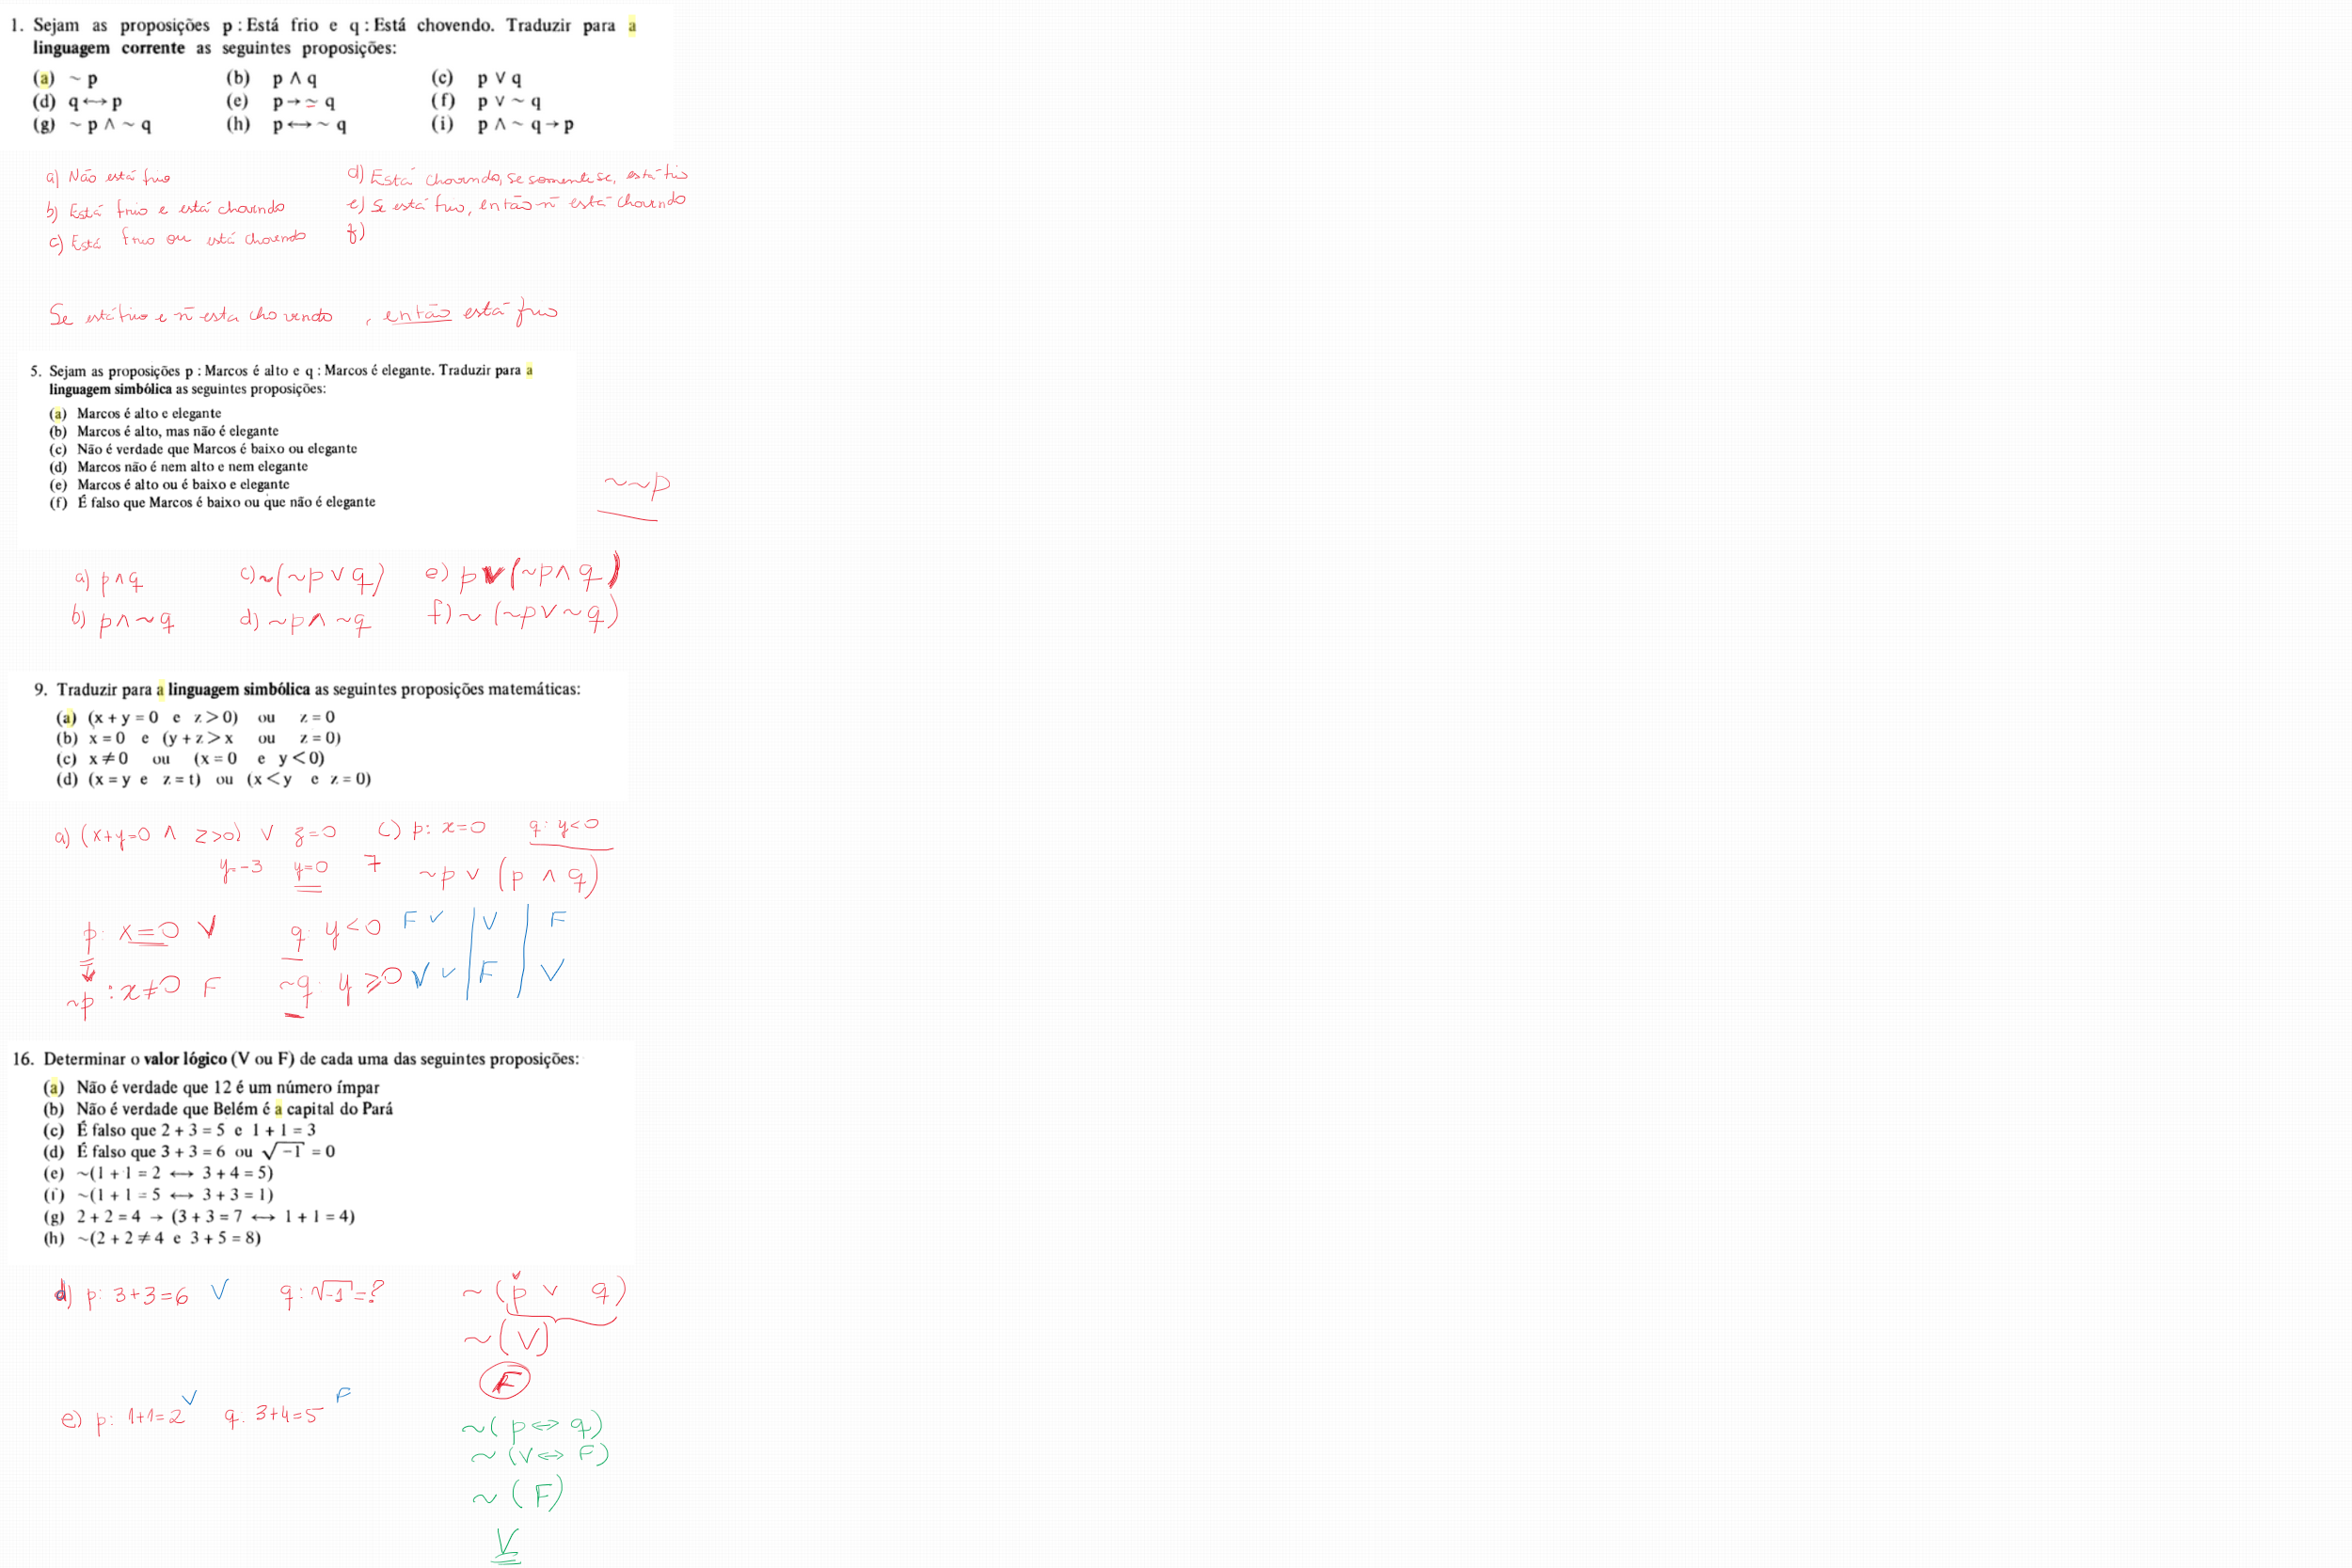 1. Sejam as proposições p : Está frio e q : Está chovendo. Traduzir para a
linguagem corrente as seguintes proposições:
(a) ~ p (b) p ∧ q (c) p ∨ q
(d) q ⟷ p (e) p → ~ q (f) p ∨ ~ q
(g) ~ p ∧ ~ q (h) p ⟷ ~ q (i) p ∧ ~ q → p
a) Não está frio
b) Está frio e está chovendo
c) Está frio ou está chovendo
d) Está chovendo, se somente se, está frio
e) Se está frio, então ñ está chovendo
f)
Se está frio e ñ esta chovendo, então está frio
5. Sejam as proposições p : Marcos é alto e q : Marcos é elegante. Traduzir para a
linguagem simbólica as seguintes proposições:
(a) Marcos é alto e elegante
(b) Marcos é alto, mas não é elegante
(c) Não é verdade que Marcos é baixo ou elegante
(d) Marcos não é nem alto e nem elegante
(e) Marcos é alto ou é baixo e elegante
(f) É falso que Marcos é baixo ou que não é elegante
~~p
a) p∧q c) ~(~p ∨ q) e) p∨(~p∧ q)
b) p∧~q d) ~p∧ ~q f) ~ (~p∨~q)
9. Traduzir para a linguagem simbólica as seguintes proposições matemáticas:
(a) (x + y = 0 e z > 0) ou z = 0
(b) x = 0 e (y + z > x ou z = 0)
(c) x ≠ 0 ou (x = 0 e y < 0)
(d) (x = y e z = t) ou (x < y e z = 0)
a) (x+y=0 ∧ z>0) ∨ z=0 c) p: x=0 q: y<0
y=-3 y=0 7 ~p ∨ (p ∧ q)
p: x=0 V q: y<0 F V | V | F
~p : x≠0 F ~q: y ≥0 V V | F | V
16. Determinar o valor lógico (V ou F) de cada uma das seguintes proposições:
(a) Não é verdade que 12 é um número ímpar
(b) Não é verdade que Belém é a capital do Pará
(c) É falso que 2 + 3 = 5 e 1 + 1 = 3
(d) É falso que 3 + 3 = 6 ou √-1 = 0
(e) ~(1 + 1 = 2 ⟷ 3 + 4 = 5)
(f) ~(1 + 1 = 5 ⟷ 3 + 3 = 1)
(g) 2 + 2 = 4 → (3 + 3 = 7 ⟷ 1 + 1 = 4)
(h) ~(2 + 2 ≠ 4 e 3 + 5 = 8)
d) p: 3+3=6 V q: √-1=? ~ (p ∨ q)
v
~(V)
F
e) p: 1+1=2 V q: 3+4=5 F
~( p ⟺ q)
~ (V ⟺ F)
~ (F)
V